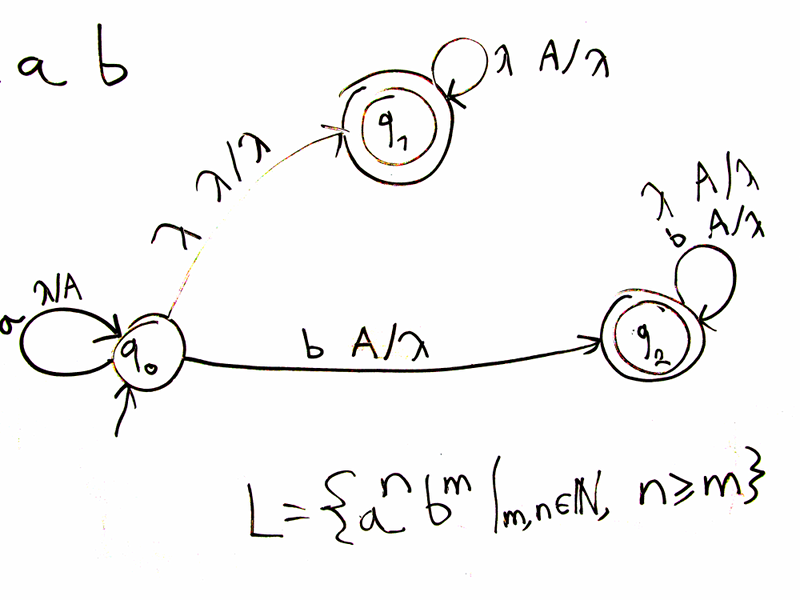 a b
λ A/λ
q₁
λ λ/λ
λ A/λ
b A/λ
a λ/A
q₀
b A/λ
q₂
L = {aⁿ bᵐ | m,n ∈ ℕ, n ≥ m}